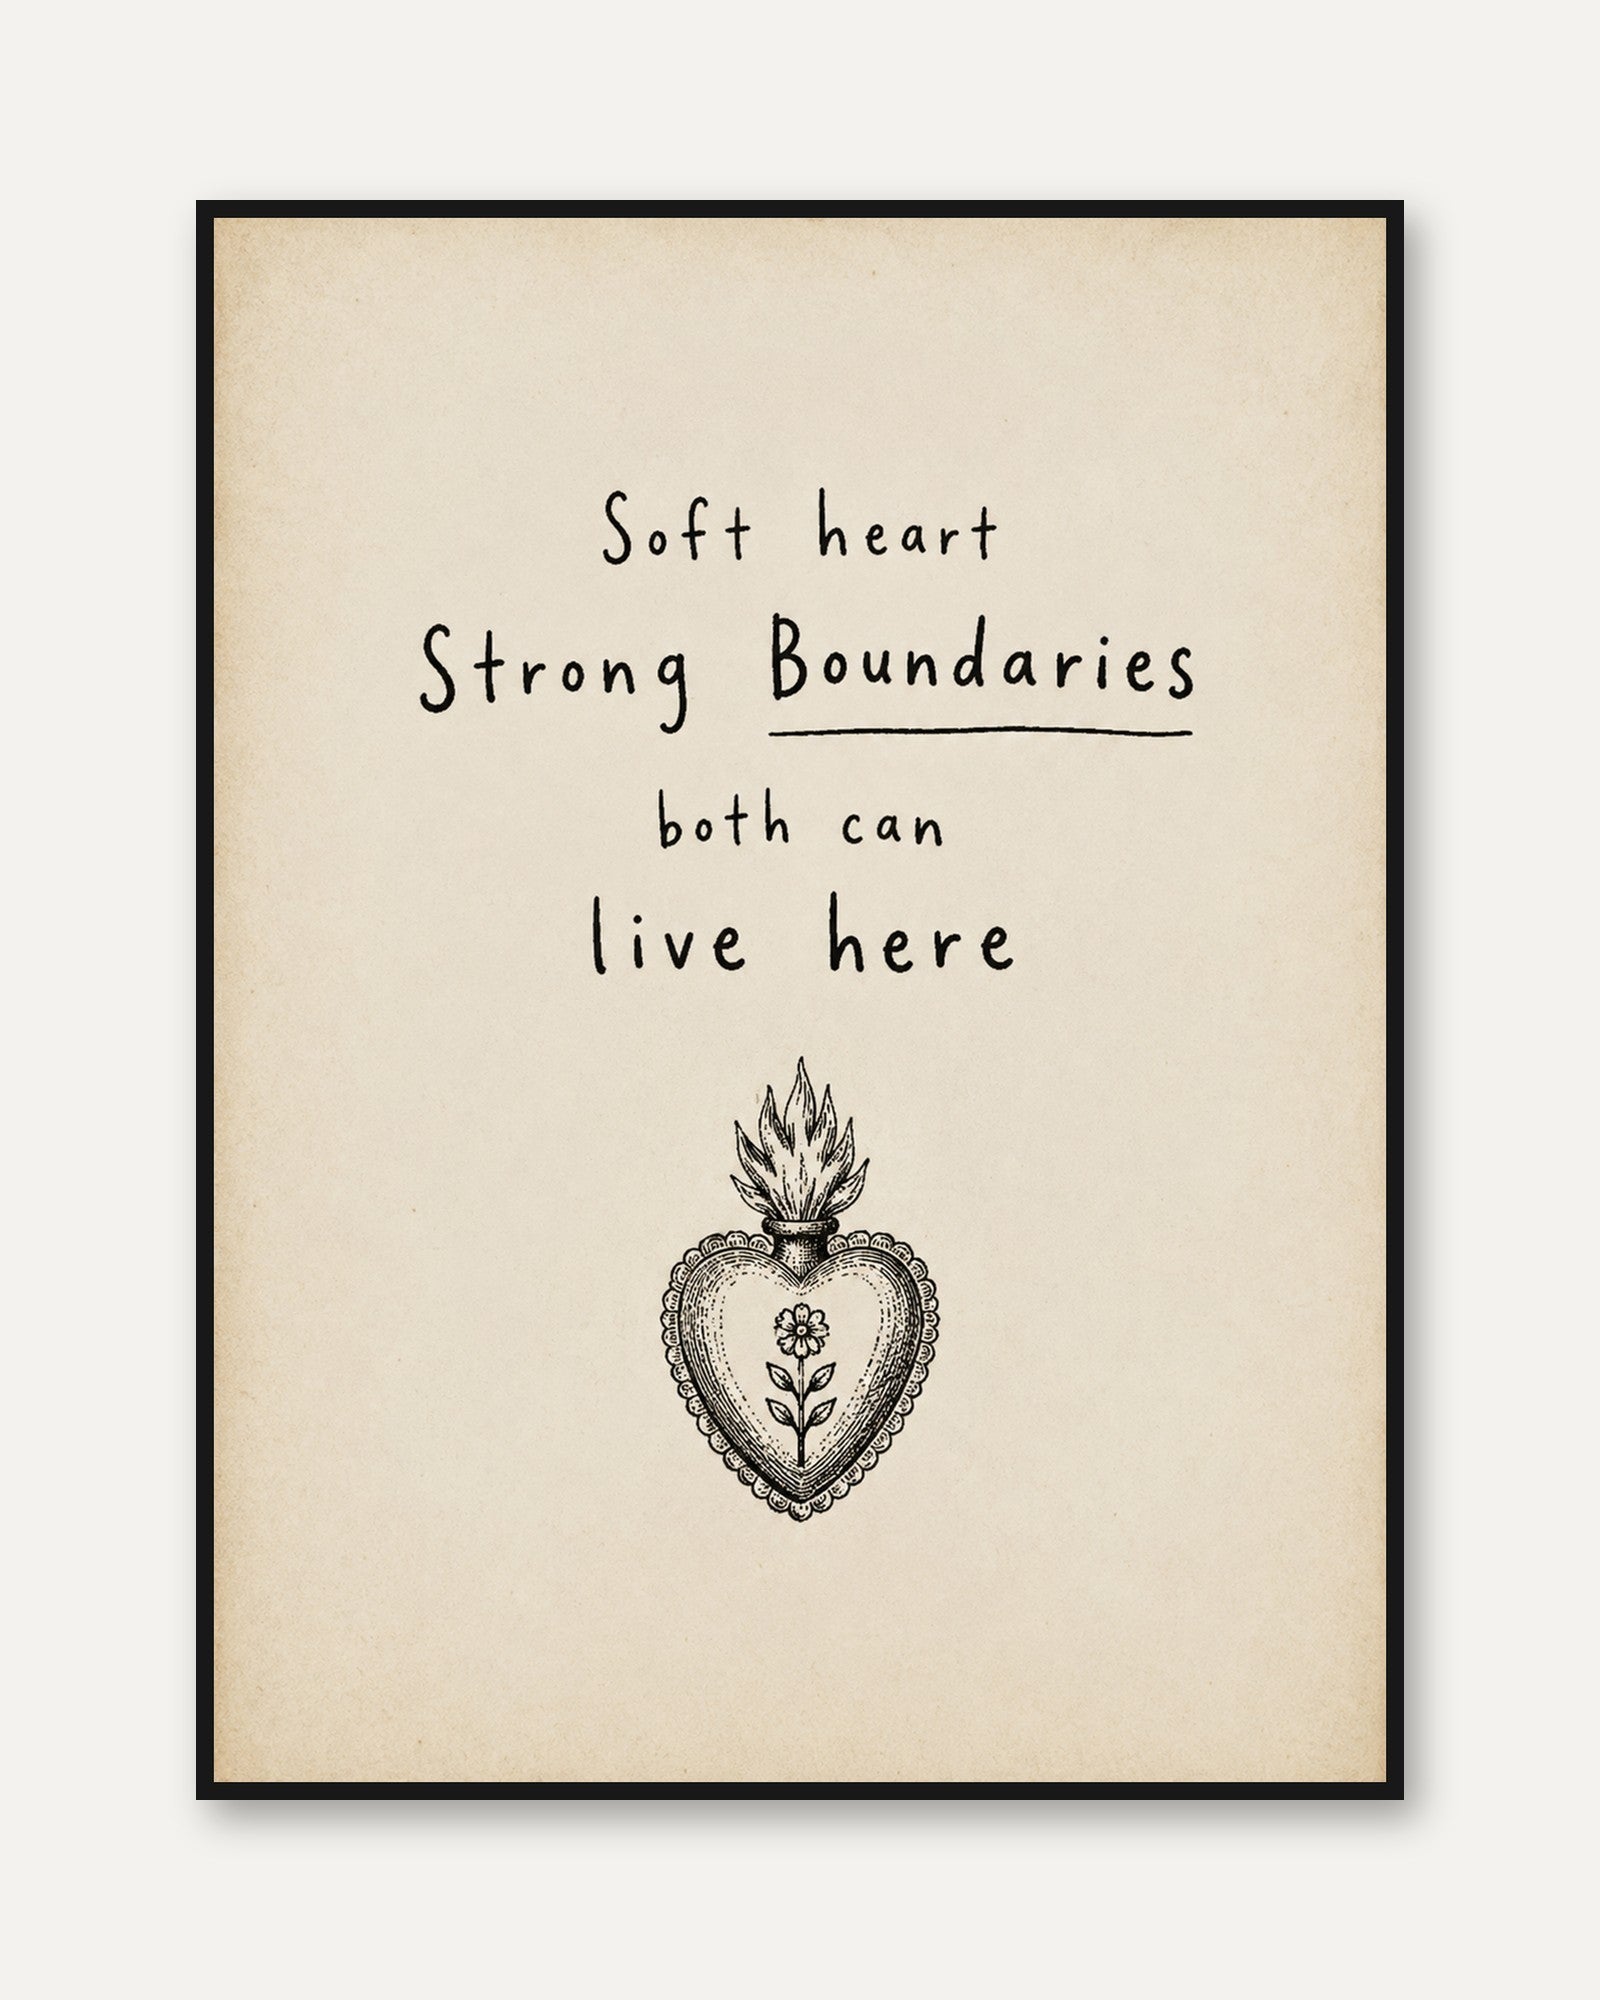 Soft heart
Strong Boundaries
both can
live here